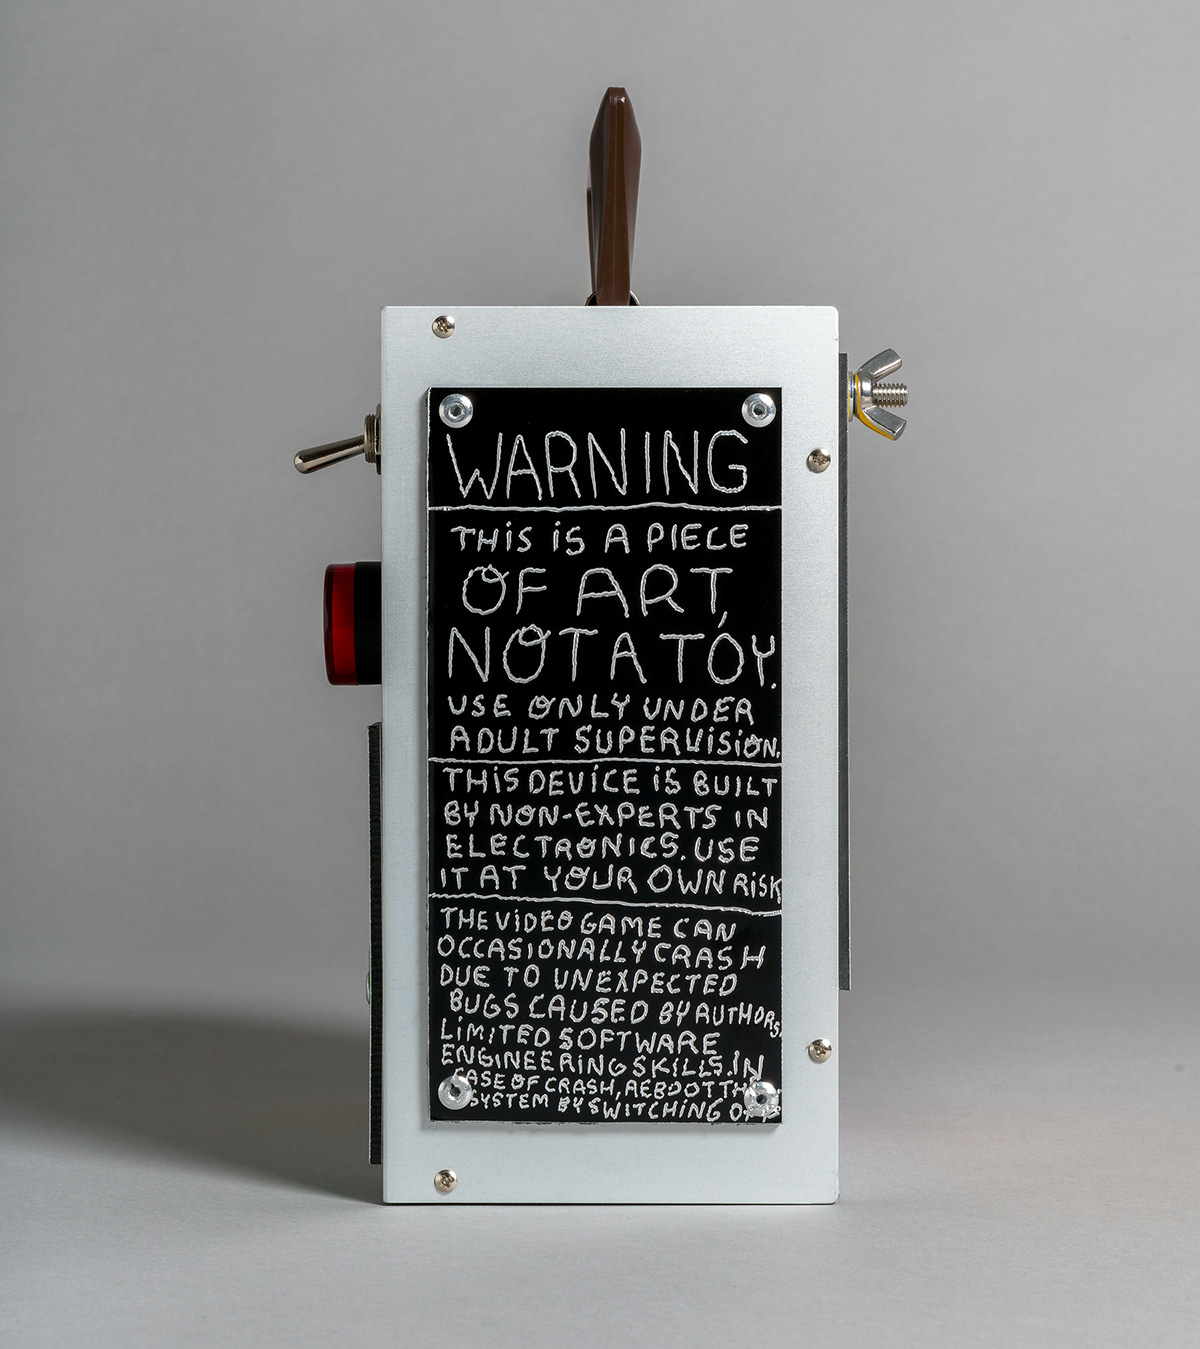 WARNING
THiS iS A PIECE
OF ART,
NOT A TOY.
USE ONLY UNDER
ADULT SUPERViSiON.
THiS DEViCE iS BUILT
BY NON-EXPERTS IN
ELECTRONICS. USE
IT AT YOUR OWN RiSK
THE ViDEO GAME CAN
OCCASIONALLY CRASH
DUE TO UNEXPECTED
BUGS CAUSED BY AUTHORS,
LiMiTED SOFTWARE
ENGINEERiNG SKiLLS. IN
CASE OF CRASH, REBOOT
SYSTEM BY SWiTCHiNG